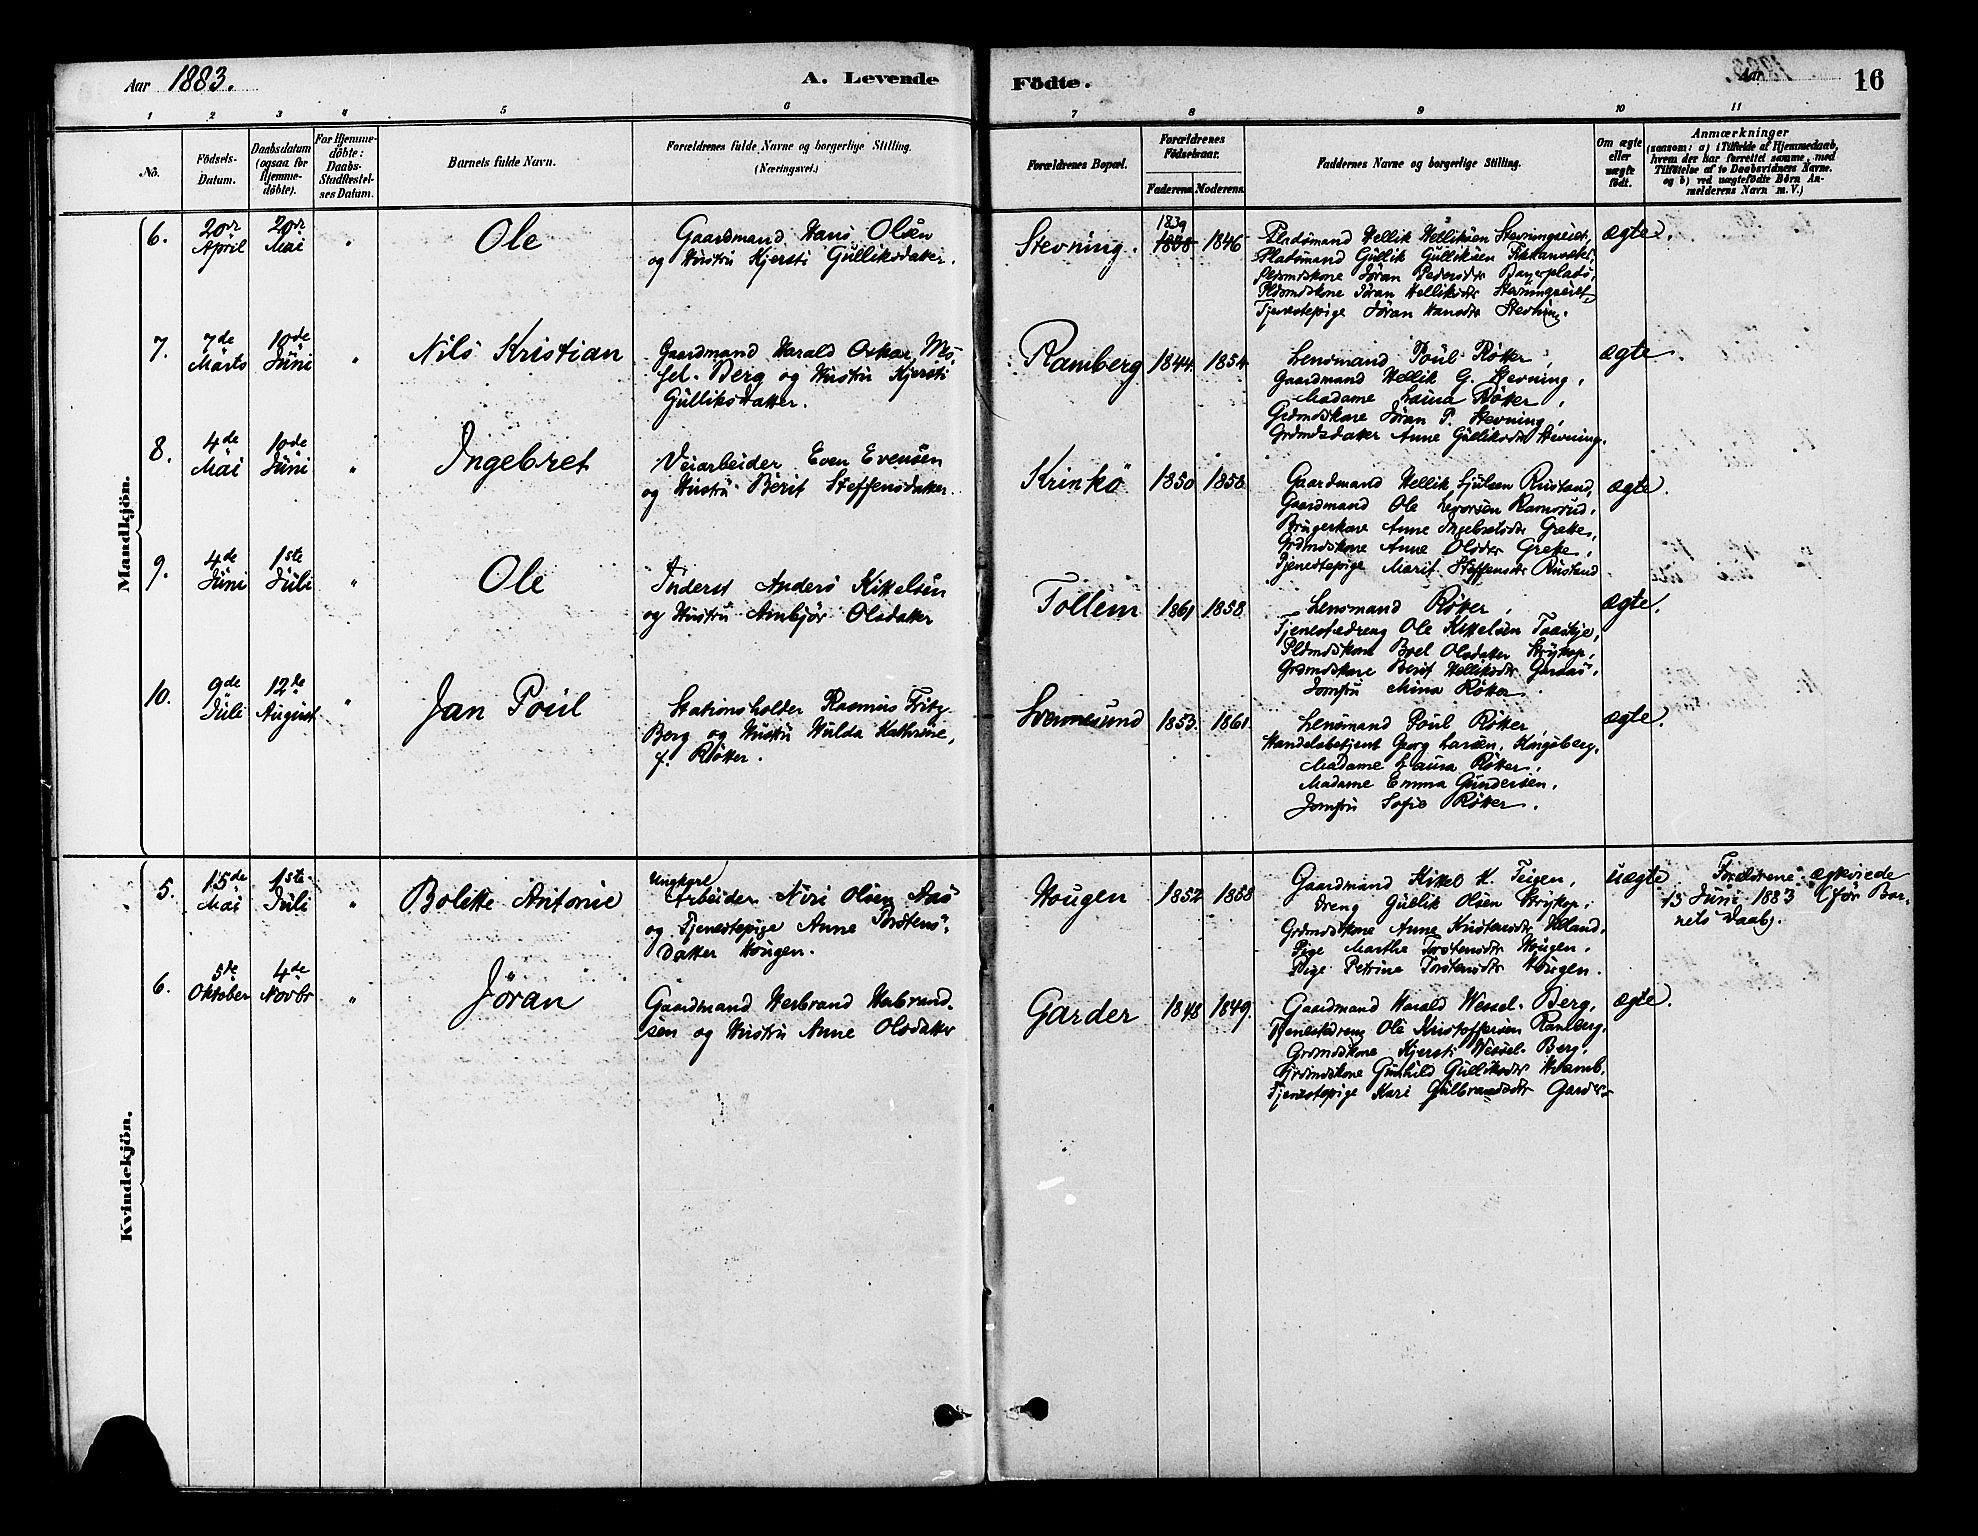 Aar 1883.
A. Levende
Födte.
Aar
16
1 2 3 4 5 6 7 8 9 10 11
No.
Födsels-
Datum.
Daabsdatum
(ogsaa for
Hjemme-
döbte).
For Hjemme-
döbte:
Daabs-
Stadfæstel-
ses Datum.
Barnets fulde Navn.
Forældrenes fulde Navne og borgerlige Stilling.
(Næringsvei.)
Forældrenes Bopæl.
Forældrenes
Födselsaar.
Faderens. Moderens.
Faddernes Navne og borgerlige Stilling.
Om ægte
eller
uægte
födt.
Anmærkninger
(saasom: a) i Tilfælde af Hjemmedaab,
hvem der har forrettet samme, med
Tilføielse af to Daabsvidners Navne.
og b) ved uægtefödte Börn An-
melderens Navn m. V.)
Mandkjön.
6. 20de April 20de Mai " Ole
Gaardmand Hans Olsen
og Hustru Kjersti Gulliksdatter.
Stevning. 1839 1846
Pladsmand Hellik Helliksen Stevningseiet,
Pladsmand Gullik Gulliksen
Pldsmdskone Jøran Pedersdtr
Pldsmdskone Jøran Helliksdtr Stevningseiet,
Tjenestepige Jøran Hansdtr Stevning.
ægte.
7. 7de Marts 10de Juni " Nils Kristian
Gaardmand Harald Oskar
sel-Berg og Hustru Kjersti
Gulliksdatter.
Ramberg 1844. 1854.
Lensmand Poul Røtter,
Gaardmand Hellik G. Stevning,
Madame Laura Røtter,
Grdmdskone Jøran P. Stevning,
Grdmdsdatter Anne Gulliksdtr Stevning.
ægte
8. 4de Mai 10de Juni " Ingebret
Veiarbeider Even Evensen
og Hustru Berit Steffensdatter.
Krinkö 1850 1858.
Gaardmand Hellik Sjulsen Rustand,
Gaardmand Ole Ramsrud,
Brugerkone Anne Ingebretsdtr Grette,
Grdmdskone Anne Olsdtr Grette,
Tjenestepige Marit Steffensdtr Rustand
ægte.
9. 4de Juni 1ste Juli " Ole
Inderst Anders Kittelsen
og Hustru Ambjør Olsdatter
Tollem 1861 1858.
Lensmand Røtter,
Tjenestedreng Ole Kittelsen
Pldmdskone Boel Olsdatter Strykop,
Grdmdskone Berit Helliksdtr
Jomfru Mina Røtter.
ægte.
10. 9de Juli 12te August " Jan Poul
Stationsholder Rasmus Fritz
Berg og Hustru Hulda Kathrine,
f. Røtter.
Svennesund 1853. 1861.
Lensmand Poul Røtter,
Handelsbetjent Georg Larsen, Kongsberg,
Madame Laura Røtter,
Madame Emma Gundersen,
Jomfru Sofie Røtter.
ægte.
Kvindekjön.
5. 15de Mai 1ste Juli " Bolette Antonie
Ungkarl
Arbeider Niri Olsen Aas
og Tjenestepige Anne Torstens-
datter Hougen.
Hougen 1852 1858
Gaardmand Kittel K. Teigen,
Dreng Gullik Olsen Strykop,
Grdmdskone Anne Kristensdtr
Pige Marthe Torstensdtr Hougen,
Pige Petrine Torstensdtr Hougen.
uægte
Forældrene ægteviede
15 Juni 1883 (før Bar-
nets Daab).
6. 5te Oktober 4de Novbr " Jöran
Gaardmand Herbrand Herbrand-
sen og Hustru Anne Olsdatter
Garder 1848 1849.
Gaardmand Harald Wessel-Berg,
Tjenestedreng Ole Kristoffersen Ramberg,
Grdmdskone Kjersti Wessel-Berg,
Grdmdskone Gunhild Gulliksdtr Hvamb,
Tjenestepige Kari Gulbrandsdtr Garder
ægte.